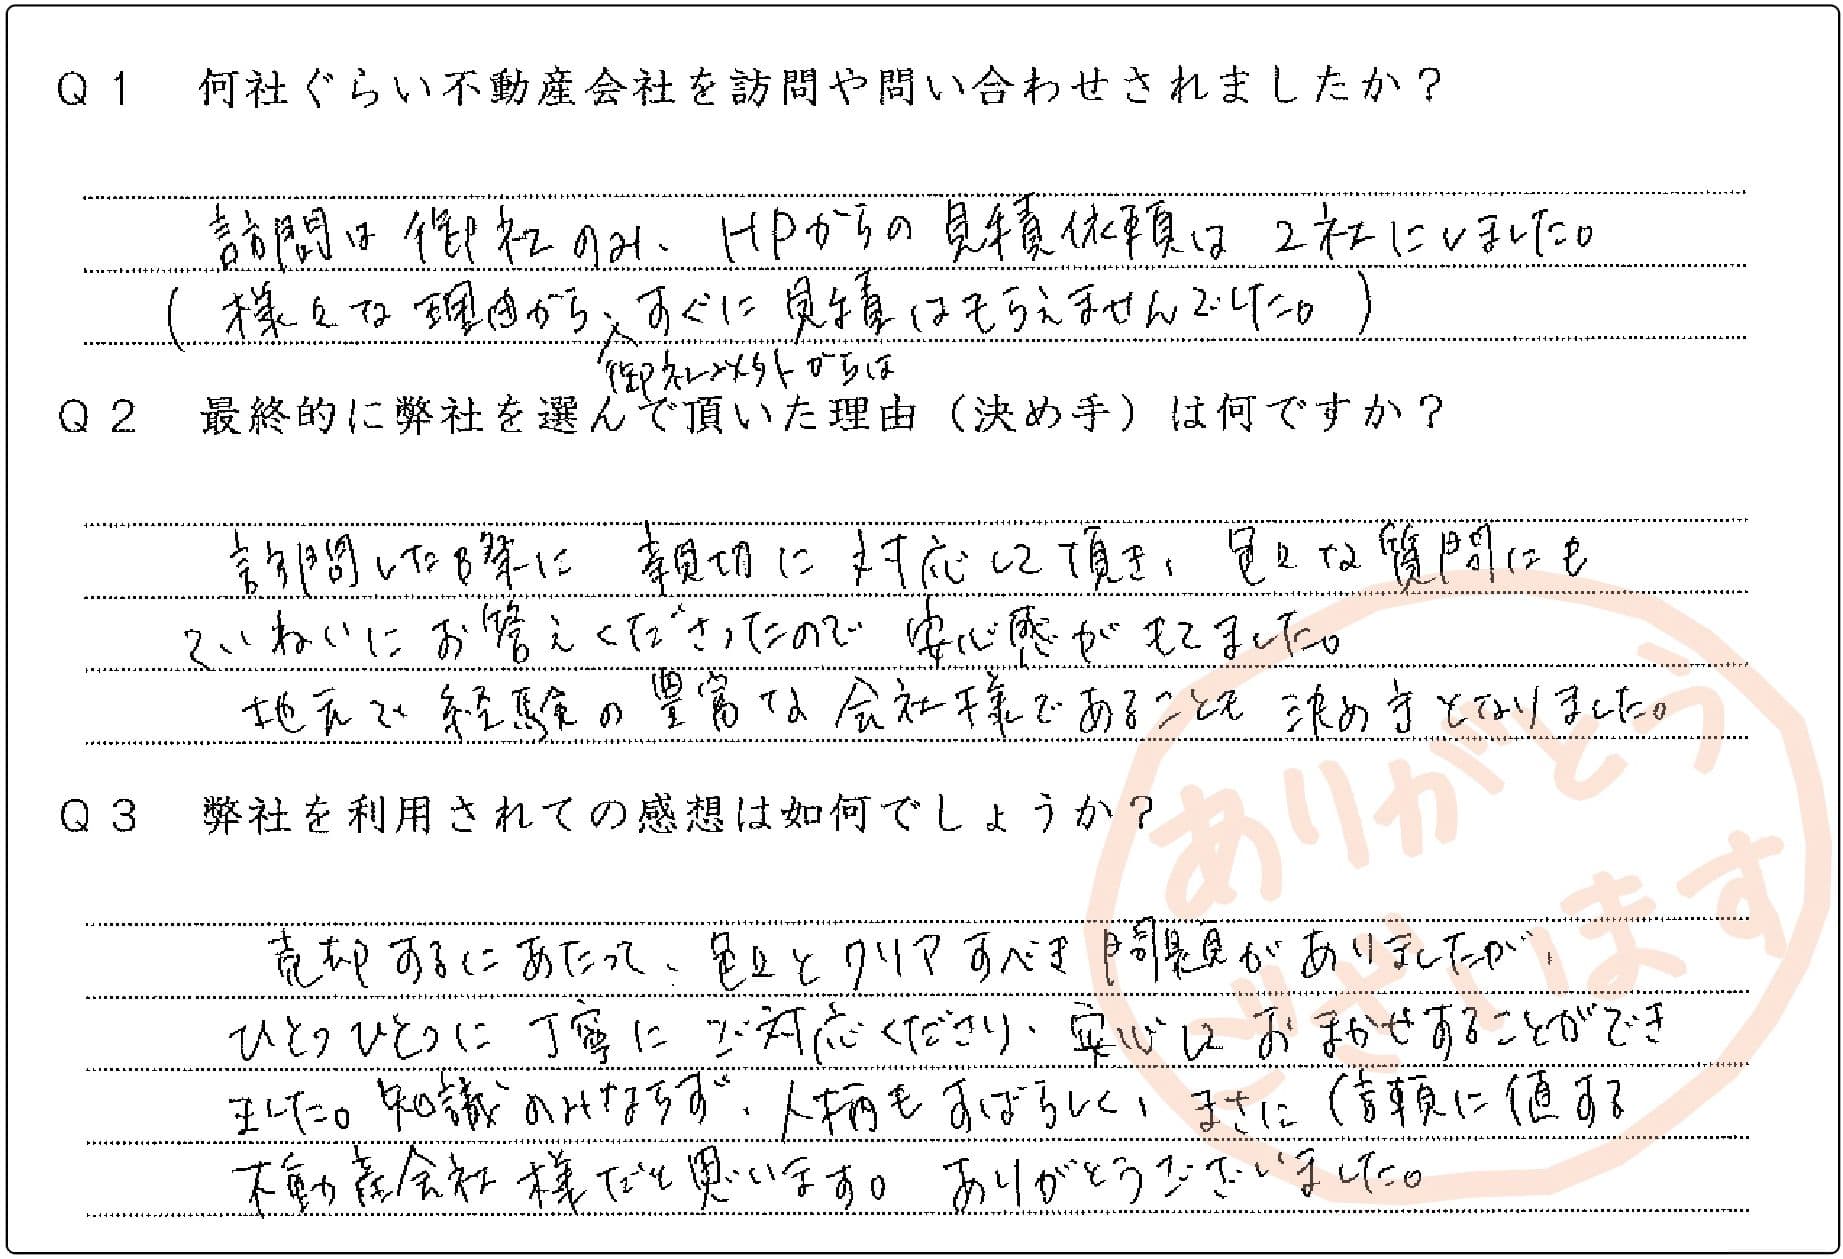 Q1 何社ぐらい不動産会社を訪問や問い合わせされましたか？
訪問は御社のみ、HPからの見積依頼は2社にしました。
(様々な理由から、すぐに見積はもらえませんでした。)
御社以外からは
Q2 最終的に弊社を選んで頂いた理由（決め手）は何ですか？
訪問した際に親切に対応して頂き、色々な質問にも
ていねいにお答えくださったので安心感がもてました。
地元で経験の豊富な会社様であることも決め手となりました。
Q3 弊社を利用されての感想は如何でしょうか？
売却するにあたって、色々とクリアすべき問題がありましたが、
ひとつひとつに丁寧にご対応くださり、安心しておまかせあることができ
ました。知識のみならず、人柄もすばらしく、まさに信頼に値する
不動産会社様だと思います。ありがとうございました。
ありがとう
ございます